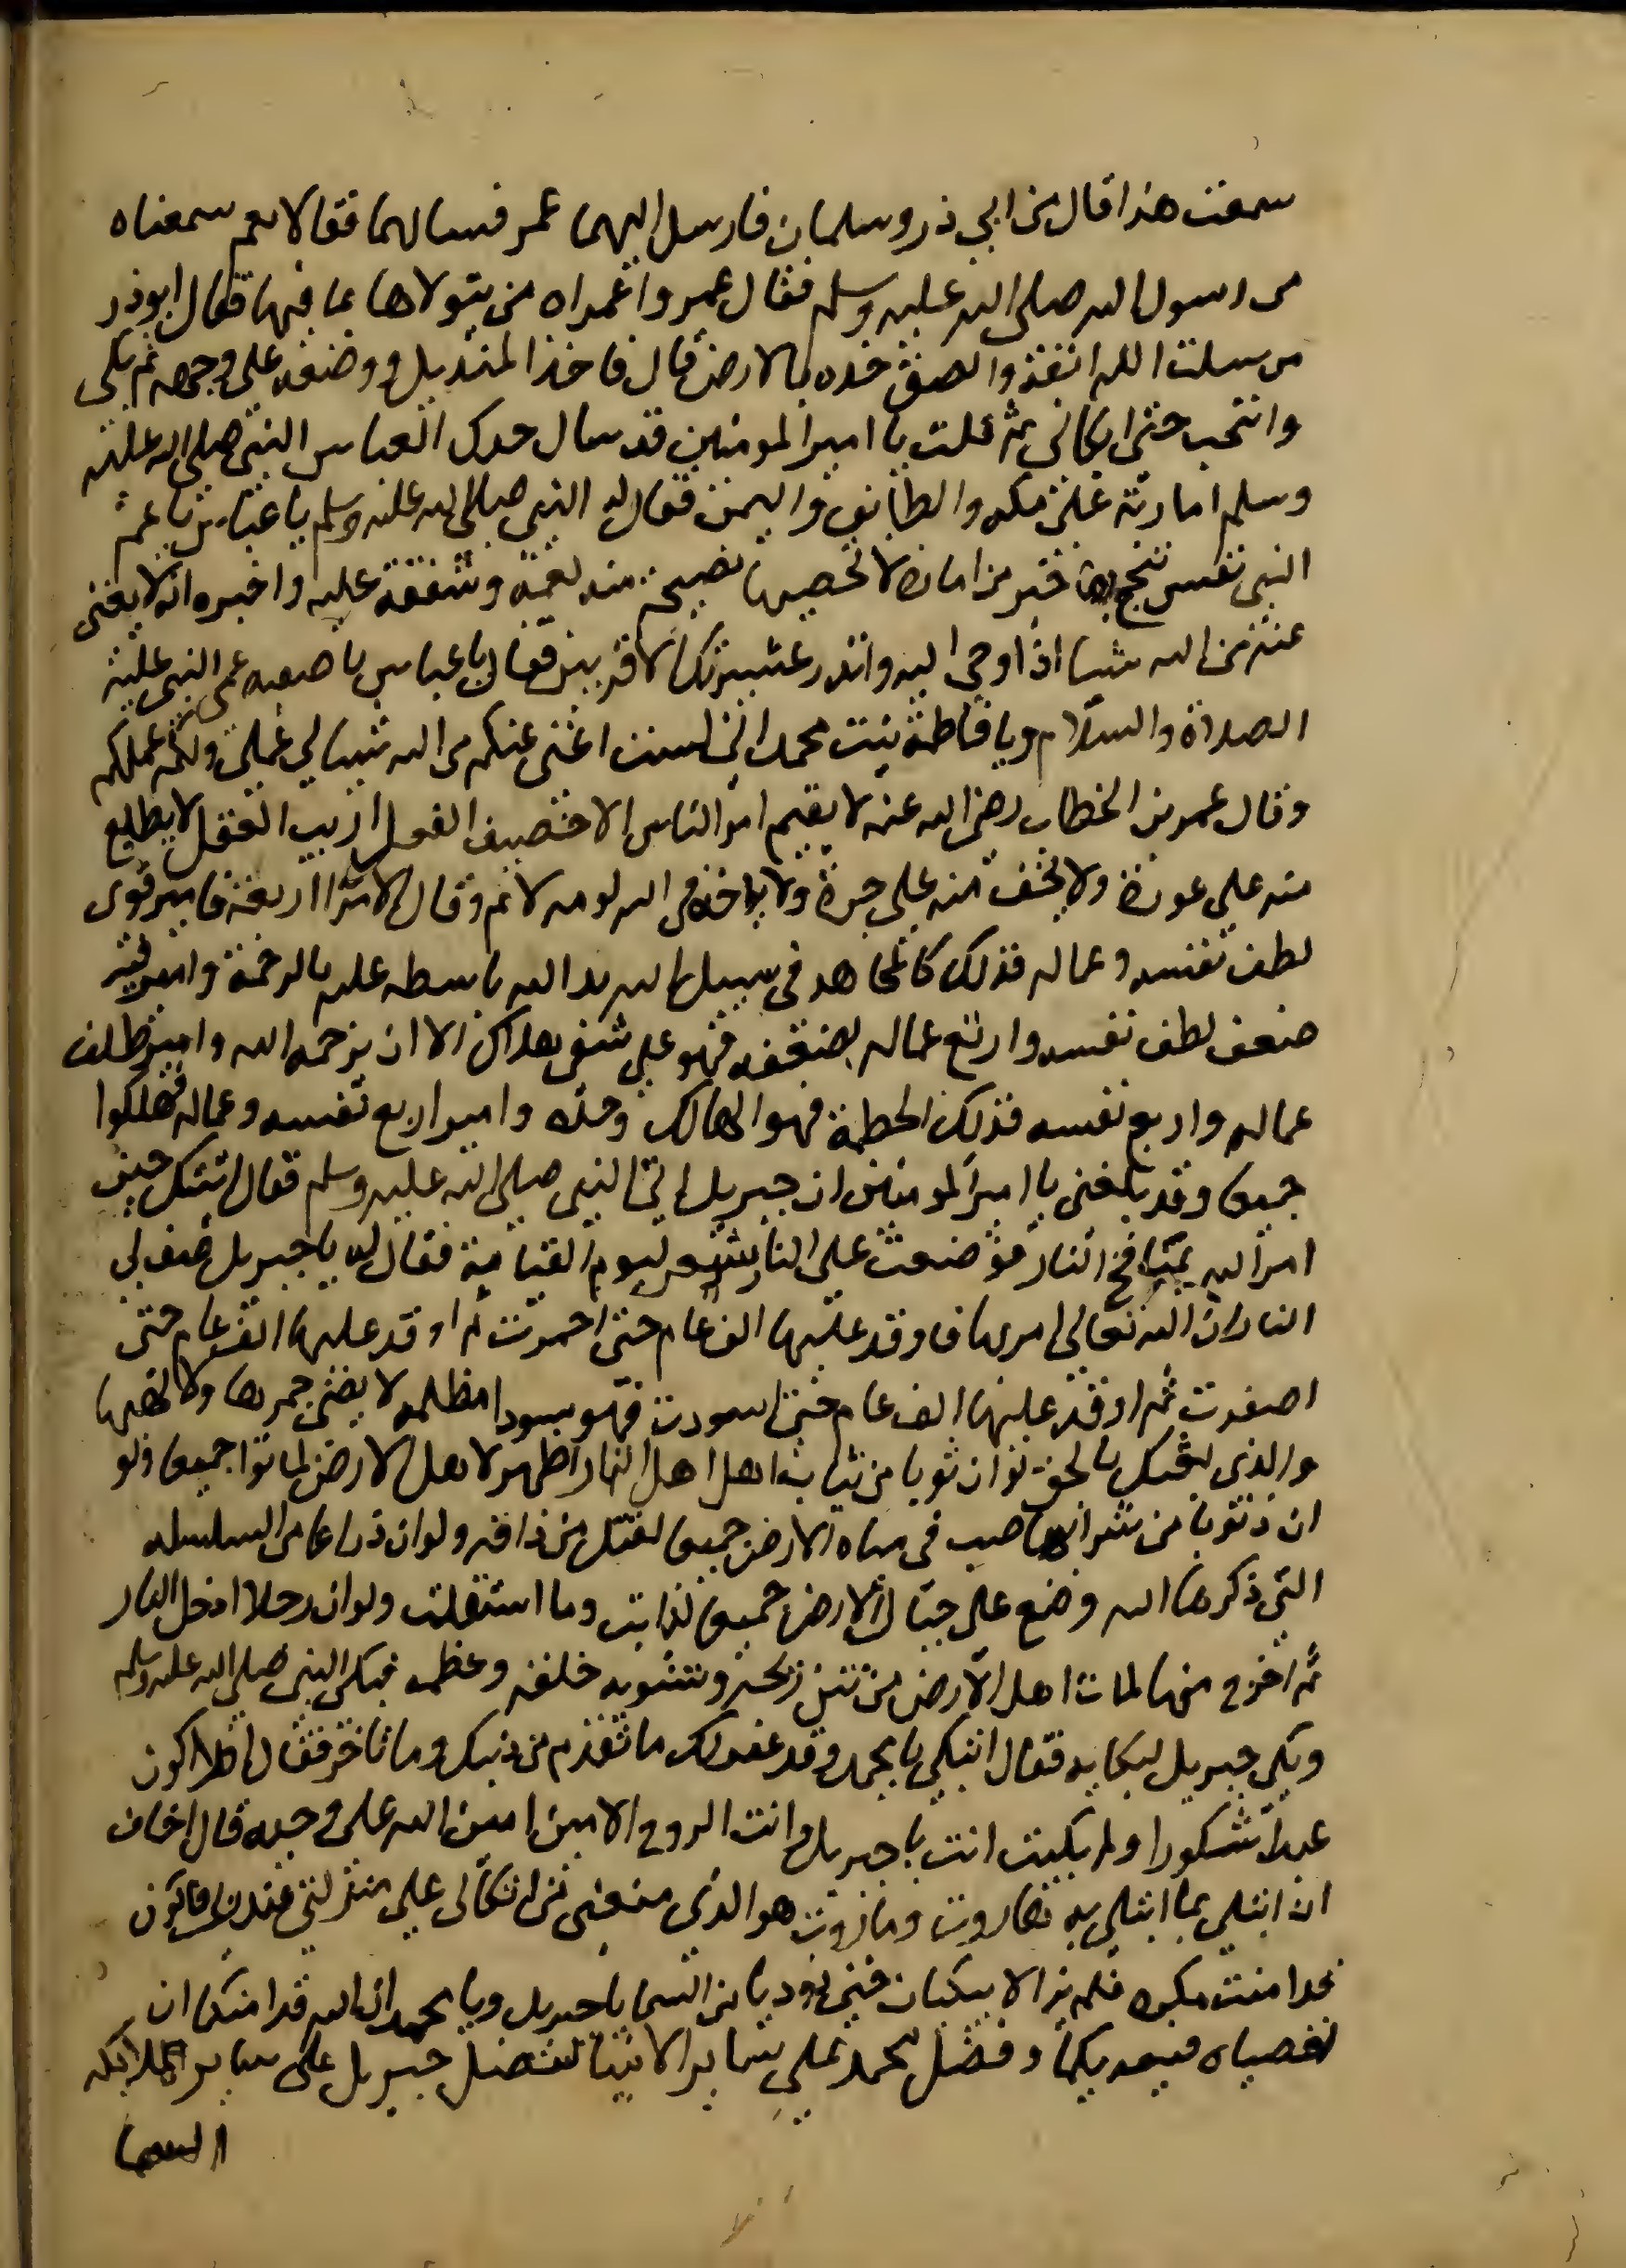 سمعت هذا قال من ابي ذر وسلمان فارسل اليهما عمر فسالهما فقالا نعم سمعناه
من رسول الله صلى الله عليه وسلم فقال عمر واعمراه من يتولاها بما فيها فقال ابو ذر
من سلت الله انفه والصق خده بالارض قال فاخذ المنديل ووضعه على وجهه ثم بكى
وانتحب حتى ابكاني ثم قلت يا امير المومنين قد سال جدك العباس النبي صلى الله عليه
وسلم امارة على مكه والطايف واليمن فقال له النبي صلى الله عليه وسلم يا عباس يا عم
النبي نفس تنجيها خير من امارة لا تحصيها نصيحة منه لعمه وشفقة عليه واخبره انه لا يغنى
عنه من الله شيا اذ اوحي اليه وانذر عشيرتك الاقربين فقال يا عباس يا صفيه عمى النبي عليه
الصلاة والسلام ويا فاطمة بنت محمد اني لست اغنى عنكم من الله شيا لي عملي ولكم عملكم
وقال عمر بن الخطاب رضى الله عنه لا يقيم امر الناس الا خصيف العقل اريب العقل لا يطلع
منه على عورة ولا يخف منه على جرة ولا ياخذه في الله لومه لائم وقال الامرا اربعة فامير قوى
لطف نفسه وعماله فذلك كالمجاهد في سبيل الله يد الله باسطه عليه بالرحمة وامير فيه
ضعف لطف نفسه وارتع عماله لضعفه فهو على شفى هلاك الا ان يرحمه الله وامير ظلف
عماله واربع نفسه فذلك الحطمة فهو الهالك وحده وامير اربع نفسه وعماله فهلكوا
جميعا وقد بلغنى يا امير المومنين ان جبريل اتى النبي صلى الله عليه وسلم فقال اتيتك حين
امر الله بمنافخ النار فوضعت على النار تسعر ليوم القيامة فقال له يا جبريل صف لي
النار ان الله تعالى امر بها فاوقد عليها الف عام حتى احمرت ثم اوقد عليها الف عام حتى
اصفرت ثم اوقد عليها الف عام حتى اسودت فهو سودا مظلمه لا يضى جمرها ولا لهبها
والذى بعثك بالحق لو ان ثوبا من ثياب اهل اهل النار اظهر لاهل الارض لماتوا جميعا ولو
ان ذنوبا من شرابها صب في مياه الارض جميعا لقتل من ذاقه ولو ان ذراعا من السلسله
التى ذكرها الله وضع على جبال الارض جميعا لذابت وما استقلت ولو ان رجلا ادخل النار
ثم اخرج منها لمات اهل الارض من نتن ريحه وتشويه خلقه وعظمه فبكى النبي صلى الله عليه وسلم
وبكى جبريل لبكايه فقال اتبكي يا محمد وقد غفر لك ما تقدم من ذنبك وما تاخر فقال افلا اكون
عبدا شكورا ولم بكيت انت يا جبريل وانت الروح الامين امين الله على وحيه قال اخاف
ان ابتلى بما ابتلى به هاروت وماروت هو الذى منعنى من اتكالى على منزلتى عند ربى فاكون
قد امنت مكره فلم يزالا يبكيان حتى نوديا من السما يا جبريل ويا محمد ان الله قد امنكما ان
تعصياه فيعذبكما وفضل محمد على ساير الانبيا كفضل جبريل على ساير الملايكه
السما